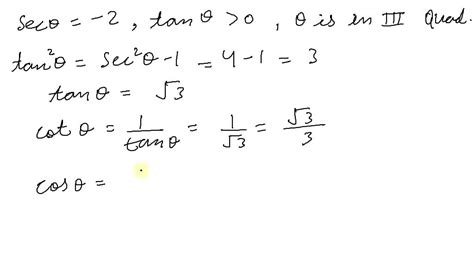 secθ = -2, tanθ > 0, θ is in III Quad.
tan²θ = sec²θ - 1 = 4 - 1 = 3
tanθ = √3
cotθ = 1/tanθ = 1/√3 = √3/3
cosθ =